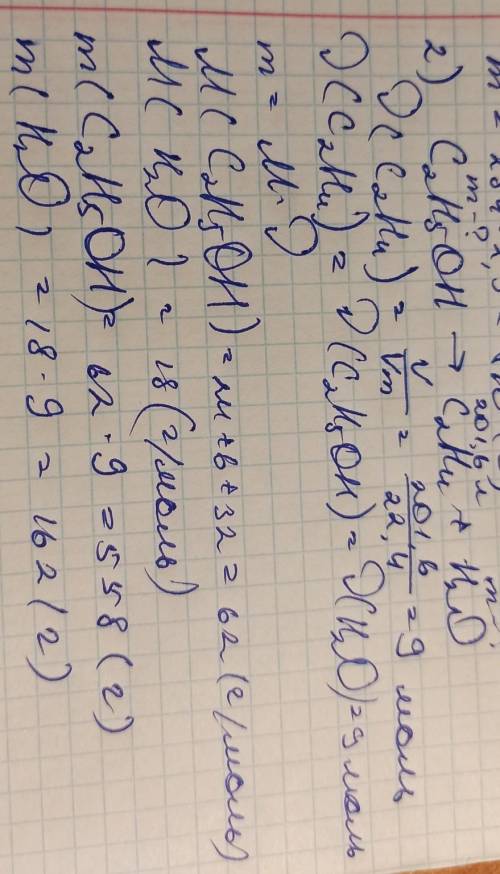 m-? 201,6 л m-?
2) C₂H₅OH → C₂H₄ + H₂O
ϑ(C₂H₄) = V/Vm = 201,6/22,4 = 9 моль
ϑ(C₂H₄) = ϑ(C₂H₅OH) = ϑ(H₂O) = 9 моль
m = M·ϑ
M(C₂H₅OH) = 24+6+32 = 62 (г/моль)
M(H₂O) = 18 (г/моль)
m(C₂H₅OH) = 62·9 = 558 (г)
m(H₂O) = 18·9 = 162 (г)